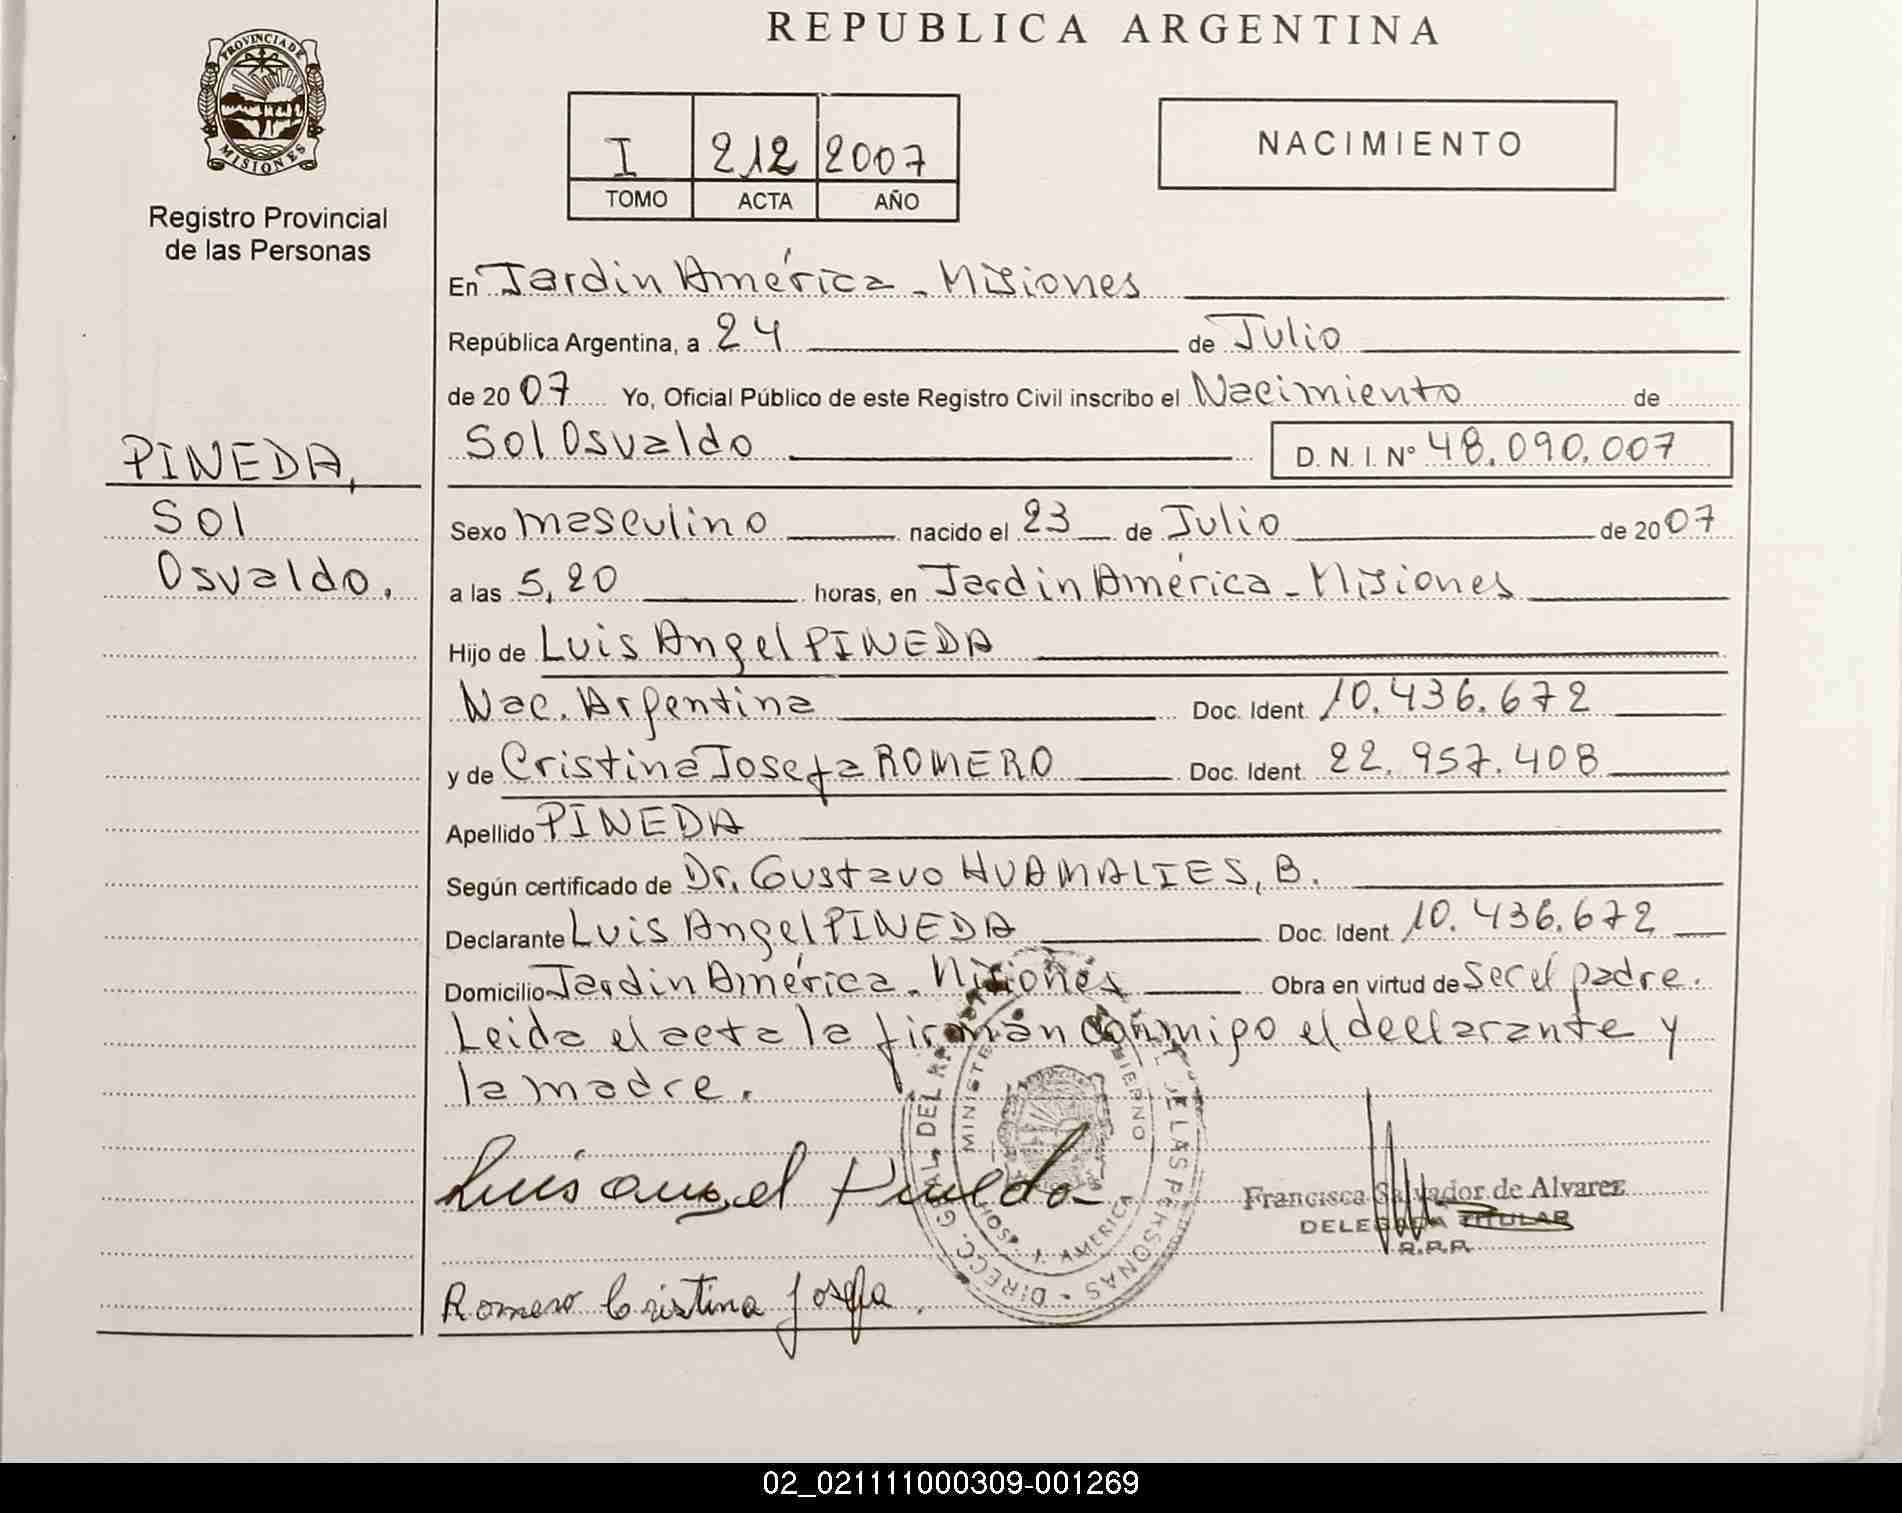 REPUBLICA ARGENTINA
PROVINCIA DE
MISIONES
Registro Provincial
de las Personas
I 212 2007
TOMO ACTA AÑO
NACIMIENTO
PINEDA,
Sol
Osvaldo.
En Jardin América - Misiones
República Argentina, a 24 de Julio
de 2007 Yo, Oficial Público de este Registro Civil inscribo el Nacimiento de
Sol Osvaldo D. N. I. Nº 48.090.007
Sexo masculino nacido el 23 de Julio de 2007
a las 5,20 horas, en Jardin América - Misiones
Hijo de Luis Angel PINEDA
Nac. Argentina Doc. Ident. 10.436.672
y de Cristina Josefa ROMERO Doc. Ident. 22.957.408
Apellido PINEDA
Según certificado de Dr. Gustavo HUAMALIES, B.
Declarante Luis Angel PINEDA Doc. Ident. 10.436.672
Domicilio Jardin América - Misiones Obra en virtud de Ser el padre.
Leida el acta la firman conmigo el declarante y
la madre.
Luis angel Pineda
Francisca Salvador de Alvarez
DELEGADA TITULAR
R.P.P.
Romero Cristina Josefa.
02_021111000309-001269